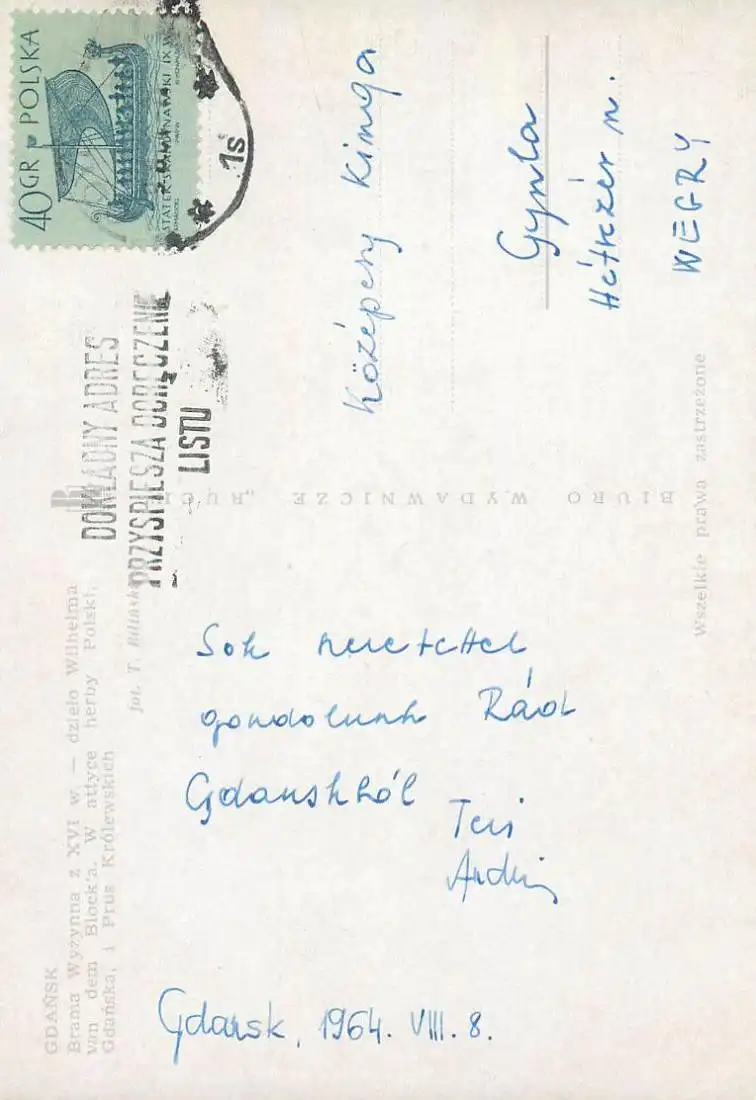 GDAŃSK
Brama Wyżynna z XVI w. — dzieło Wilhelma
van dem Block'a. W attyce herby Polski,
Gdańska, i Prus Królewskich
fot. T.
40 GR POLSKA
STATEK SKANDYNAWSKI IX W.
1s
DOKŁADNY ADRES
PRZYSPIESZA DORĘCZENIE
LISTU
BIURO WYDAWNICZE „RUCH"
Wszelkie prawa zastrzeżone
Középesy Kinga
Gyula
Hétvezér u.
WEGRY
Sok szeretettel
gondolunk Rád
Gdanskból
Teri
Gdansk, 1964. VIII. 8.